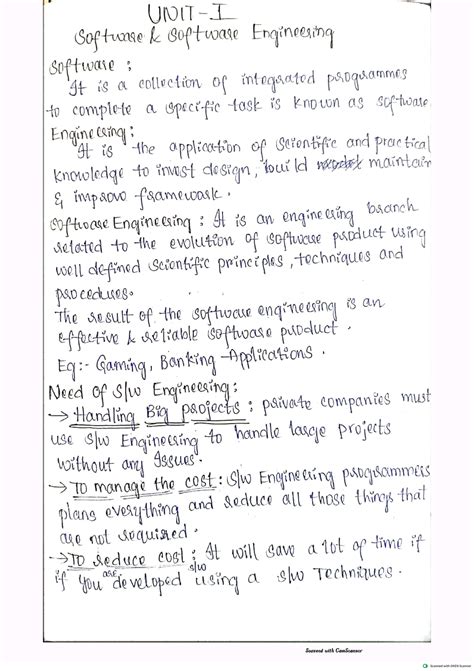 UNIT-I
Software & Software Engineering
Software :
It is a collection of integrated programmes
to complete a specific task is known as software
Engineering :
It is the application of scientific and practical
knowledge to invest design, build maintain
& improve framework.
Software Engineering : It is an engineering branch
related to the evolution of software product using
well defined scientific principles, techniques and
procedures.
The result of the software engineering is an
effective & reliable software product.
Eg:- Gaming, Banking Applications.
Need of S/W Engineering:
→ Handling Big projects : private companies must
use S/W Engineering to handle large projects
without any Issues.
→ To manage the cost : S/W Engineering programmers
plans everything and reduce all those things that
are not required.
→ TO reduce cost : It will save a lot of time if
if you are developed s/w using a s/w Techniques.
Scanned with CamScanner
Scanned with OKEN Scanner